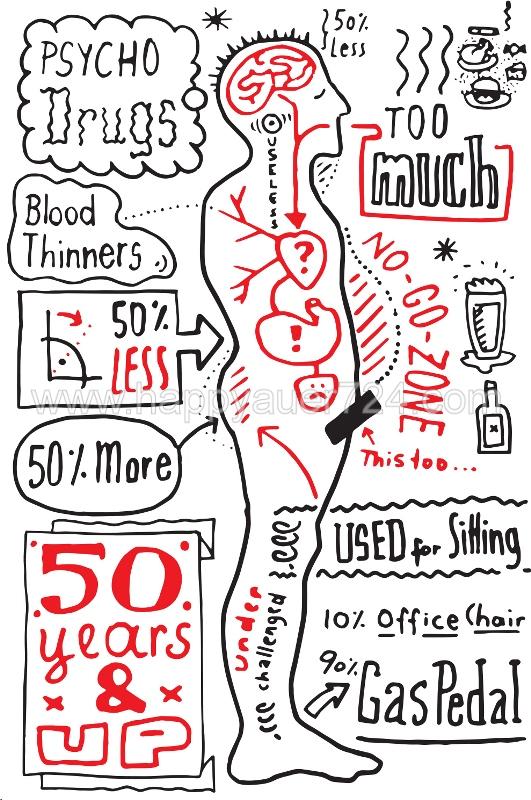 50%
Less
PSYCHO
Drugs
TOO
much
USELESS
Blood
Thinners
?
NO-GO-ZONE
50%
LESS
!
www.happyauer724.com
This too...
50% More
USED for Sitting
50
years
&
UP
under
challenged
10% Office Chair
90%
Gas Pedal